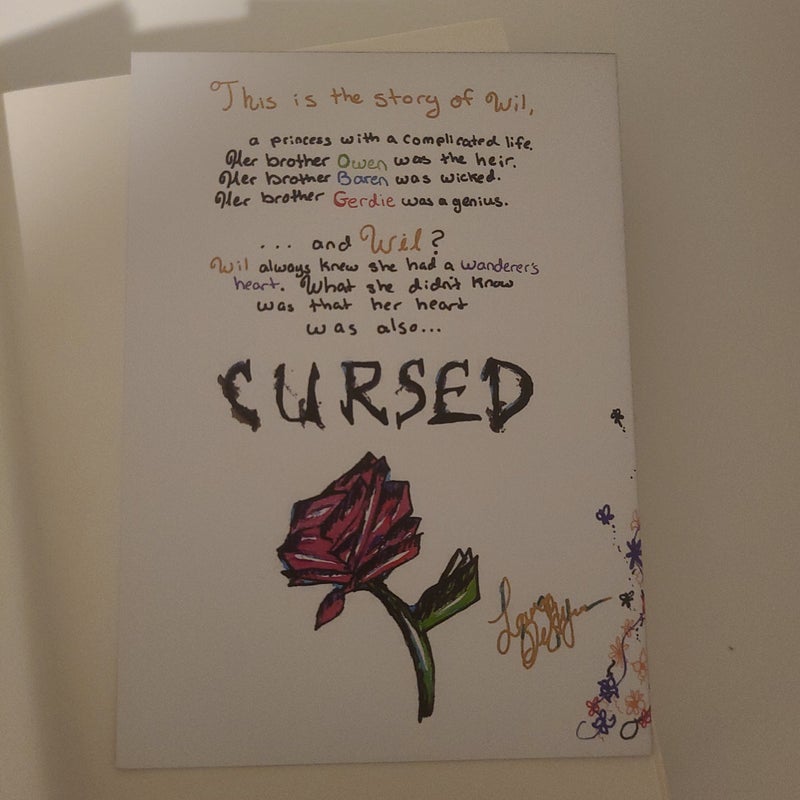 This is the story of Wil,
a princess with a complicated life.
Her brother Owen was the heir.
Her brother Baren was wicked.
Her brother Gerdie was a genius.
... and Wil?
Wil always knew she had a wanderer's
heart. What she didn't know
was that her heart
was also...
CURSED